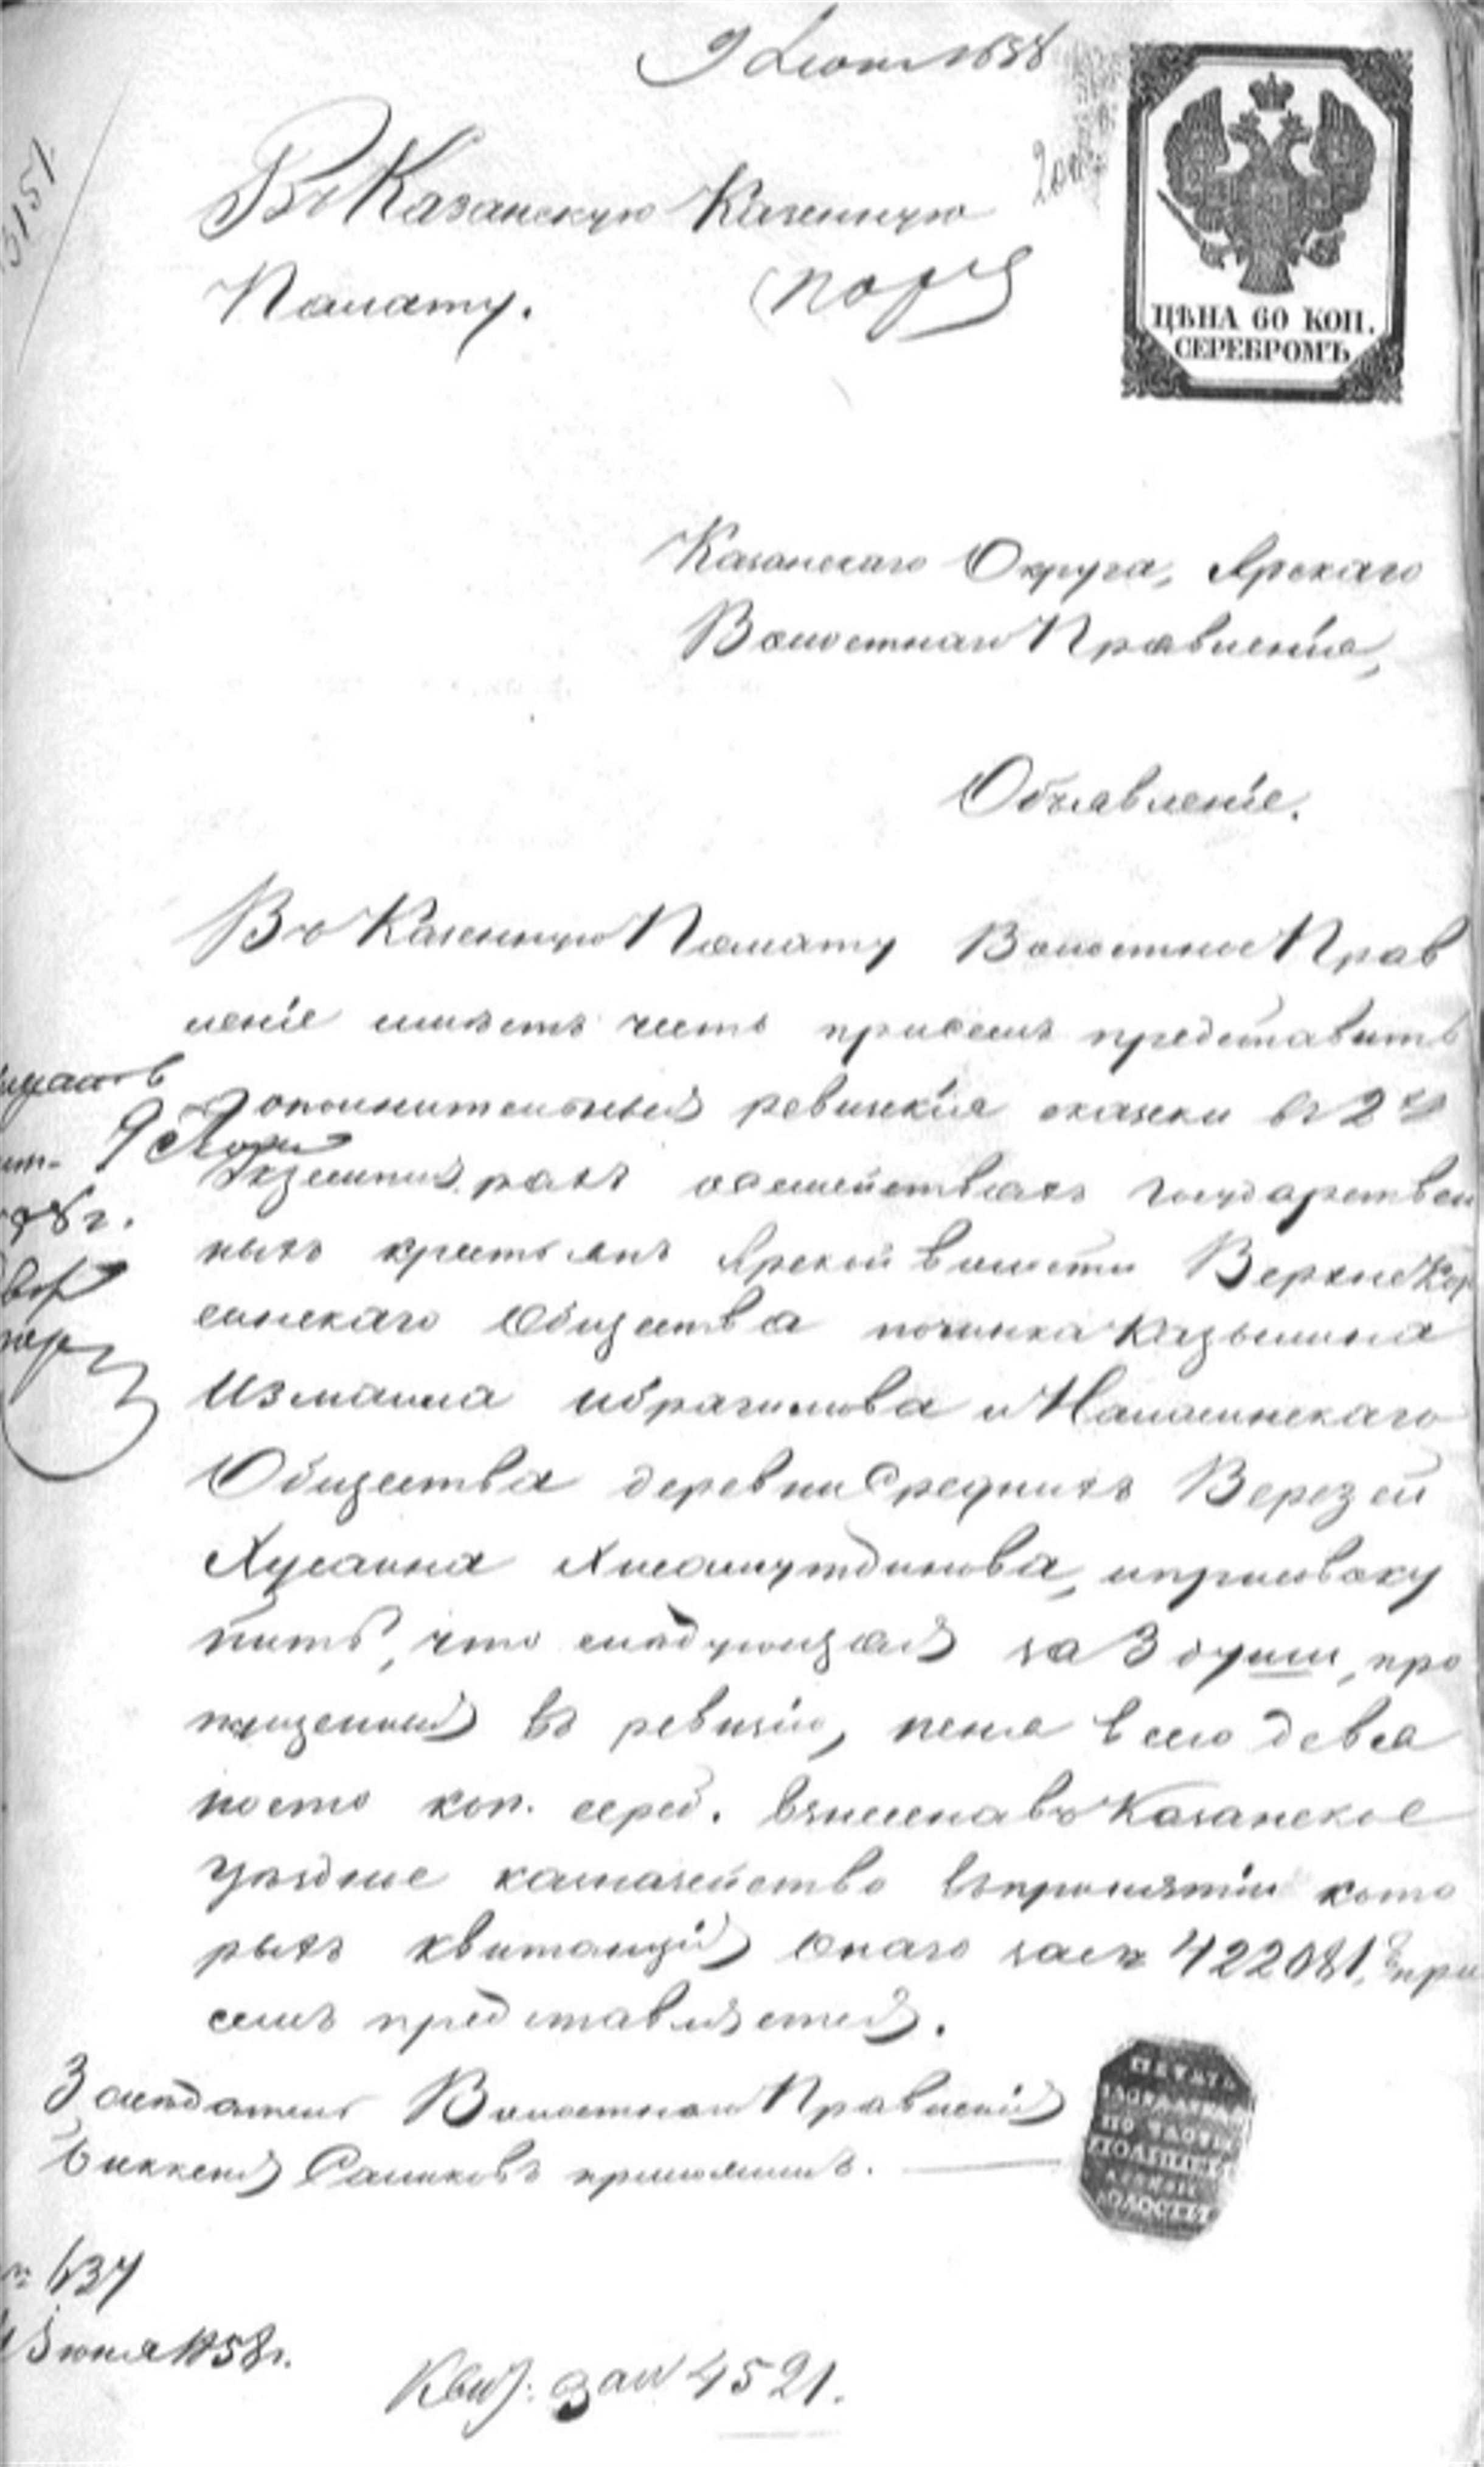 9 Июня 1858
Въ Казанскую Казенную
Палату.
ЦѢНА 60 КОП.
СЕРЕБРОМЪ
Казанскаго Округа, Арскаго
Волостнаго Правленія,
Объявленіе.
Въ Казенную Палату Волостное Прав
леніе имѣетъ честь присемъ представить
дополнительныя ревизскія сказки въ 2хъ
Экземплярахъ осемействахъ государствен
ныхъ крестьянъ Арской волости ВерхнеКор
синскаго Общества починка Казылина
Измаила Ибрагимова и Наласинскаго
Общества деревни Среднихъ Верезей
Хусаина Хисамутдинова, иприсовоку
пить, что слѣдующая за 3 души, про
пущенныя въ ревизію, пеня всего девя
носто коп. сереб. взнесена въ Казанское
уѣздное казначейство впринятіи кото
рыхъ квитанція онаго за № 422081, при
семъ представляется.
Засѣдатель Волостнаго Правленія
Саликовъ приложилъ.
ПЕЧАТЬ
ПО ЧАСТИ
ВОЛОСТИ
№ 637
Июня 1858 г.
Квит: за № 4521.